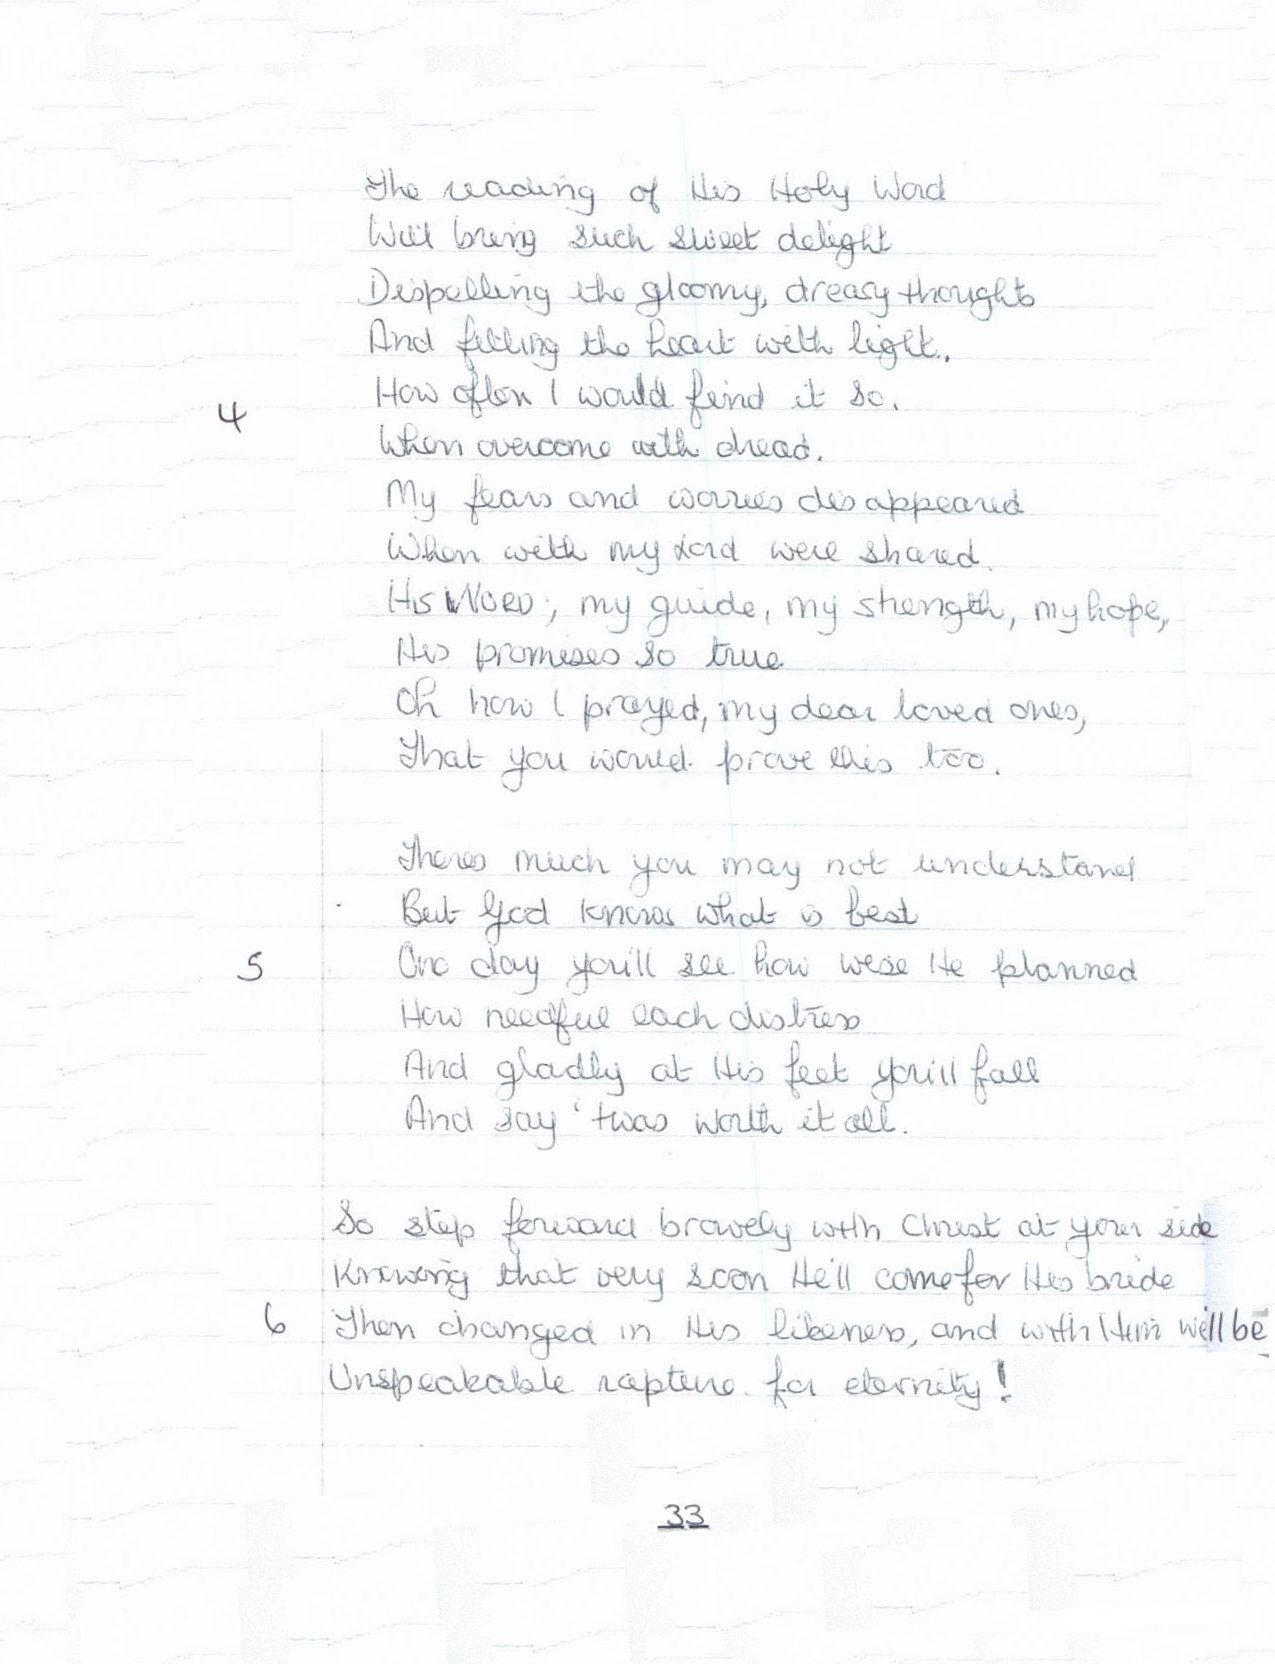 The reading of His Holy Word
Will bring such sweet delight
Dispelling the gloomy, dreary thoughts
And filling the heart with light.
How often I would find it so.
4
When overcome with dread.
My fears and worries disappeared
When with my Lord were shared.
HIS WORD; my guide, my strength, my hope,
His promises so true
Oh how I prayed, my dear loved ones,
That you would prove this too.
Theres much you may not understand
But God knows what is best
5 One day you'll see how wise He planned
How needful each distress
And gladly at His feet you'll fall
And say 'twas worth it all.
So step forward bravely with Christ at your side
Knowing that very soon He'll come for His bride
6 Then changed in His likeness, and with Him we'll be
Unspeakable rapture for eternity!
33